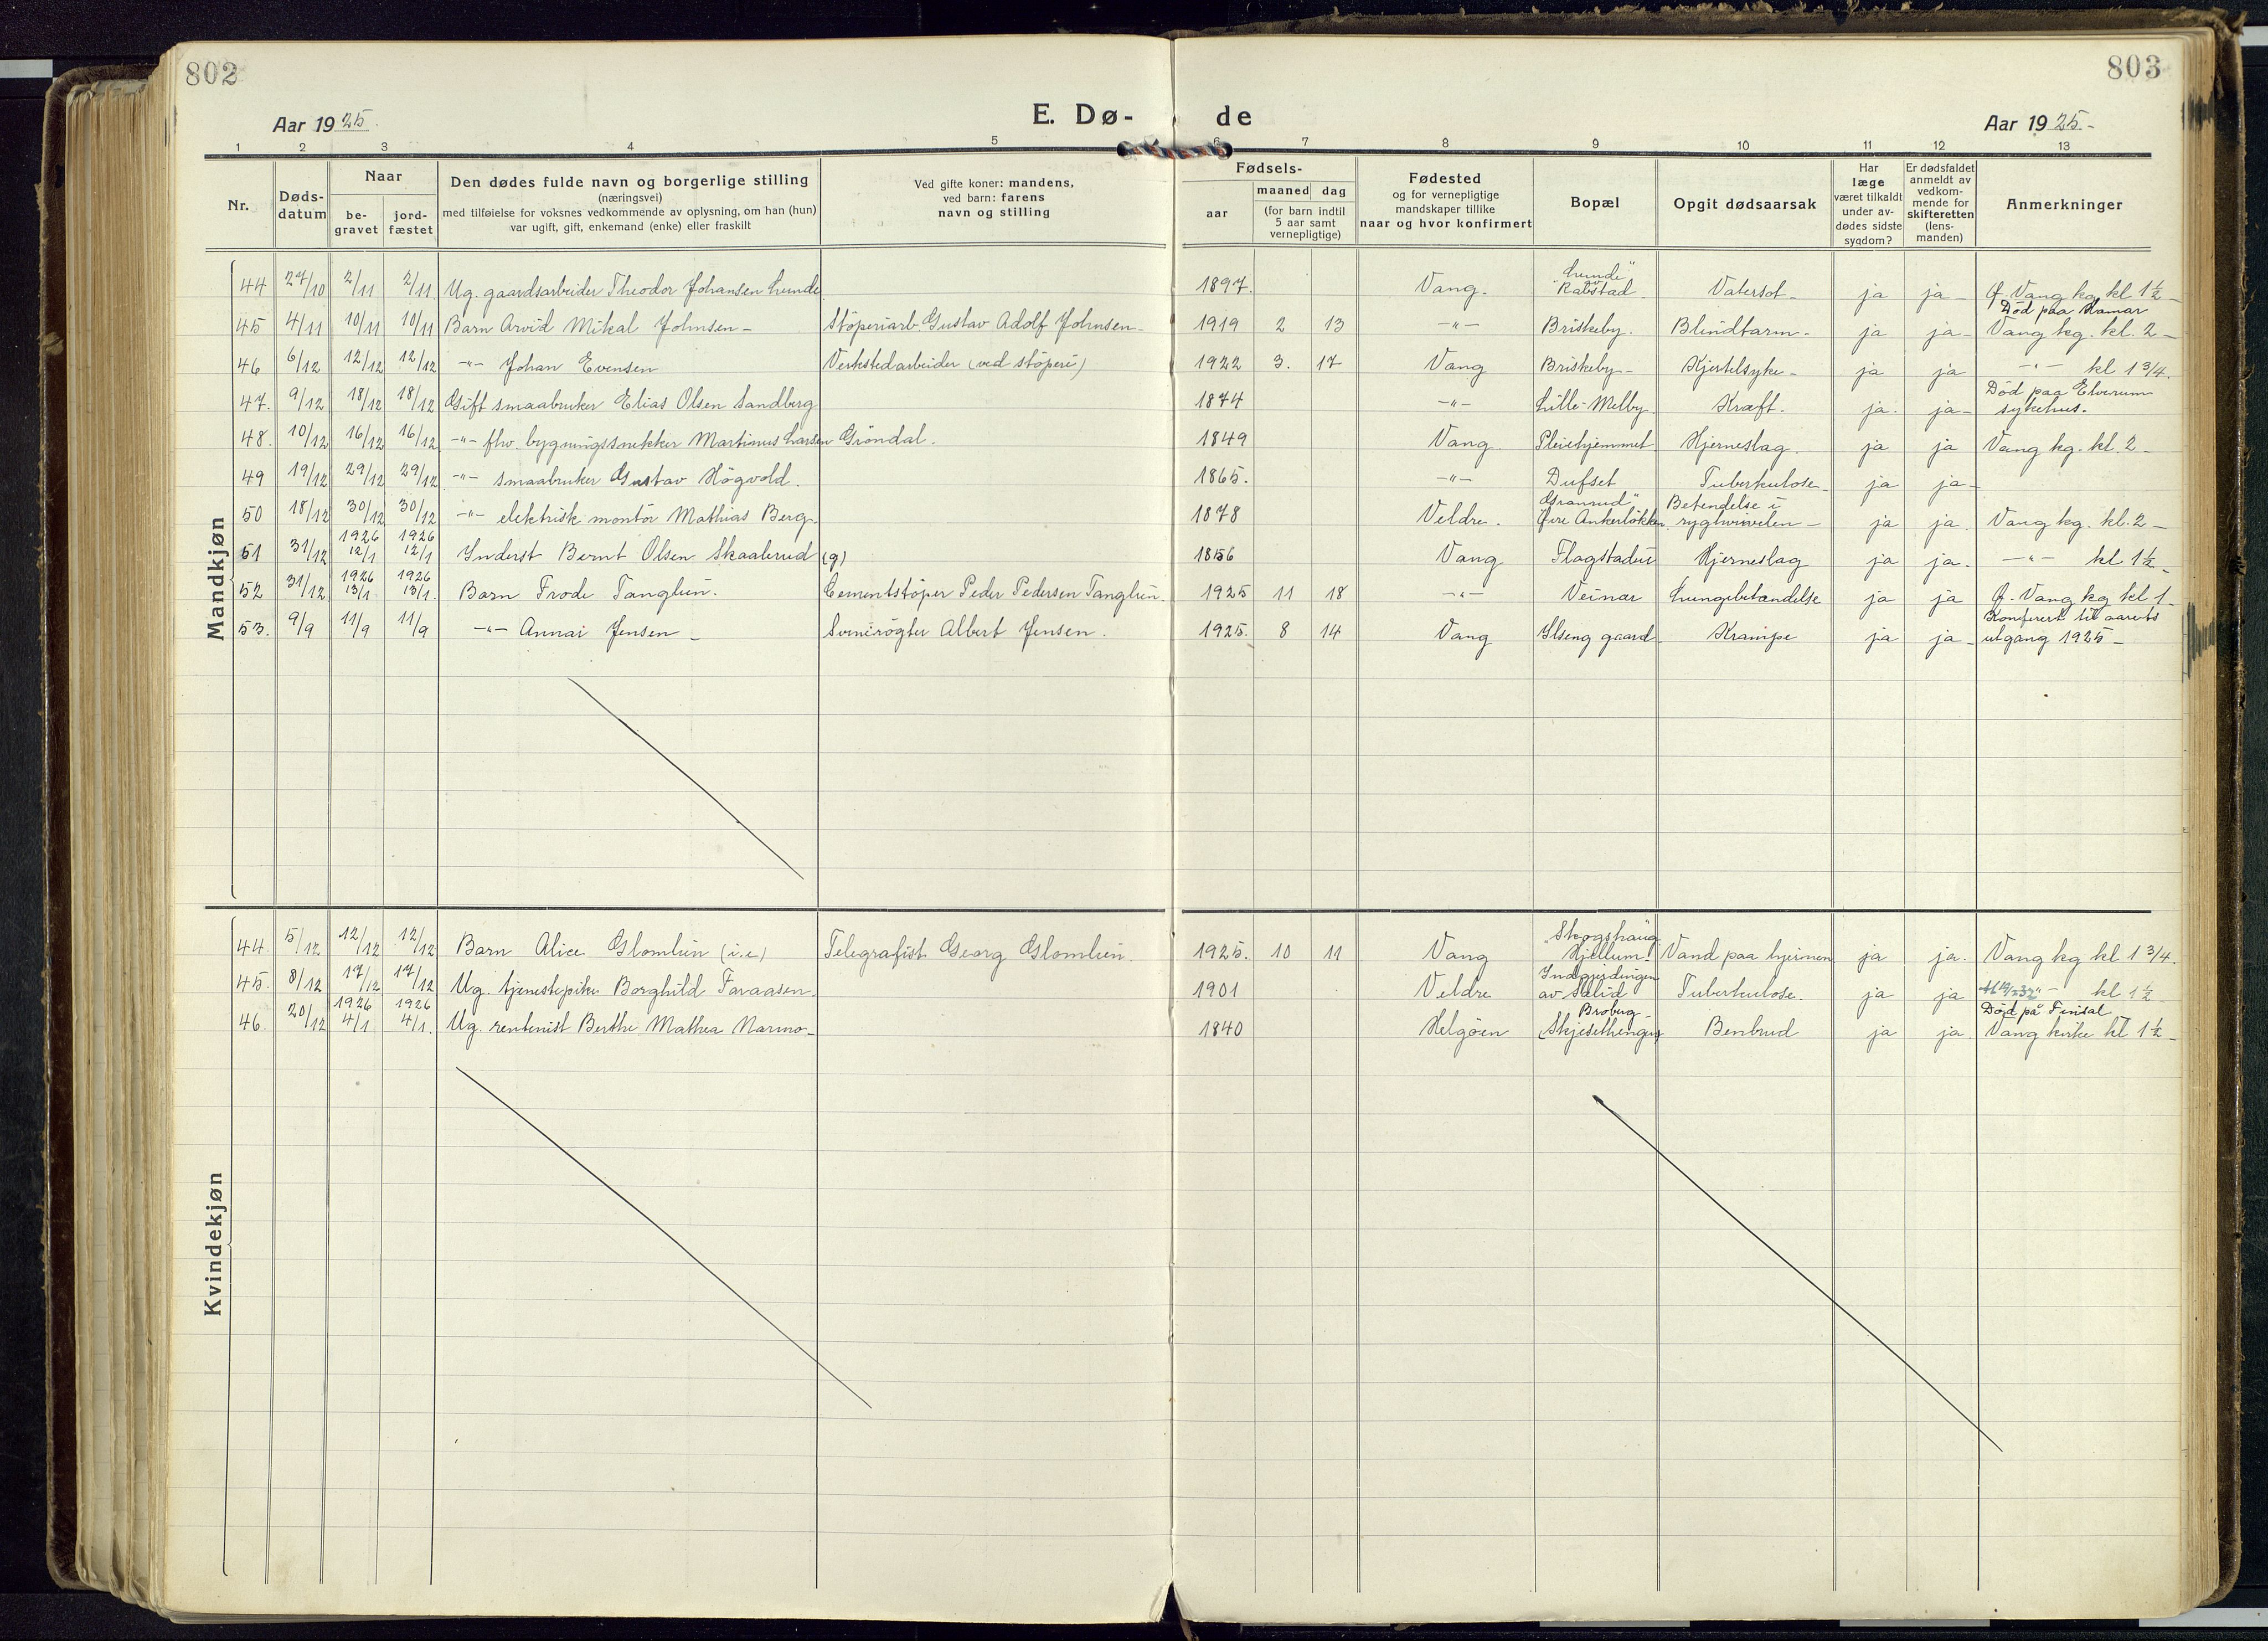 802
803
Aar 1925.
E. Dø-
de
Aar 1925-
1 2 3 4 5 6 7 8 9 10 11 12 13
Nr.
Døds-
datum
Naar
be-
gravet
jord-
fæstet
Den dødes fulde navn og borgerlige stilling
(næringsvei)
med tilføielse for voksnes vedkommende av oplysning, om han (hun)
var ugift, gift, enkemand (enke) eller fraskilt
Ved gifte koner: mandens,
ved barn: farens
navn og stilling
Fødsels-
aar
maaned dag
(for barn indtil
5 aar samt
vernepligtige)
Fødested
og for vernepligtige
mandskaper tillike
naar og hvor konfirmert
Bopæl
Opgit dødsaarsak
Har
læge
været tilkaldt
under av-
dødes sidste
sygdom?
Er dødsfaldet
anmeldt av
vedkom-
mende for
skifteretten
(lens-
manden)
Anmerkninger
Mandkjøn
44 27/10 2/11 2/11 Ug. gaardsarbeider Theodor Johansen Lunde 1897. Vang. "Lunde" Rabstad Vatersot ja ja Ø. Vang kg kl 1½
45 4/11 10/11 10/11 Barn Arvid Mikal Johnsen - Støperiarb. Gustav Adolf Johnsen 1919 2 13 -"- Briskeby. Blindtarm ja ja Død paa Hamar
Vang kg. kl. 2 -
46 6/12 12/12 12/12 -"- Johan Evensen Verkstedarbeider (ved støperi) 1922 3. 17 Vang Briskeby Kjertelsyke ja ja -"- kl 1¾.
47. 9/12 18/12 18/12 Gift smaabruker Elias Olsen Sandberg 1874 -"- Lille-Melby Kræft. ja. ja Død paa Elverum
sykehus.
48. 10/12 16/12 16/12 -"- fhv. bygningssnekker Martinus Larsen Grøndal. 1849 Vang. Pleiehjemmet Hjerneslag. ja ja Vang kg. kl. 2
49 19/12 29/12 29/12 -"- smaabruker Gustav Høgvold. 1865. -"- Dufset Tuberkulose ja ja
50 18/12 30/12 30/12 -"- elektrisk montør Mathias Berg 1878 Veldre. Granrud" Øvre Ankerløkken Betendelse i
ryghvirvelen ja ja. Vang kg. kl. 2 -
51 31/12 1926 12/1 1926 12/1 Inderst Bernt Olsen Skaalerud (g) 1856 Vang Flagstadeie Hjerneslag ja ja. -"- kl 1½
52 31/12 1926 13/1 1926 13/1. Barn Frode Tanglien. Cementstøper Peder Pedersen Tanglien. 1925 11 18 -"- Veinar Lungebetændelse ja ja Ø. Vang kg kl 1
53. 9/9 11/9 11/9 -"- Annar Jensen Svinerøgter Albert Jensen. 1925. 8 14 Vang Ilseng gaard Krampe ja ja Konferert til aarets
utgang 1925 -
Kvindekjøn
44. 5/12 12/12 12/12 Barn Alice Glomlien (i.e) Telegrafist Georg Glomlien. 1925. 10 11 Vang "Skogshaug" Hjellum. Vand paa hjernen ja ja. Vang kg kl 1¾.
45. 8/12 17/12 17/12 Ug. tjenestepike Borghild Faraasen. 1901 Veldre Indgjerdingen
av Sælid Tuberkulose. ja ja -"- kl 1½
46. 20/12 1926 4/1 1926 4/1. Ug. rentenist Berthe Mathea Narmo 1840 Helgøen Broberg
(Skjesethengen) Benbrud ja ja. Død på Finsal
Vang kirke kl 1½